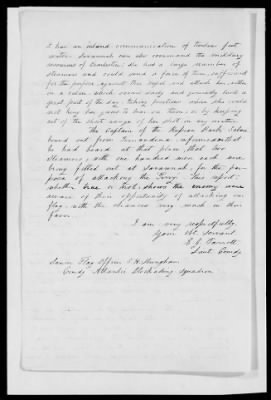 I has an inland communication of twelve feet
water, Savannah can also command the building
resources of Charleston. She had a large number of
steamers and could send a force of them, sufficient
for the purpose against this ship and attack her either
in a calm, which occurs daily and generally lasts a
great part of the day, taking positions where she could
not bring her guns to bear on them, or by keeping
out of the short range of her shot in any weather.
The Captain of the Russian Bark
bound out from Fernandina, informed me that
he had heard at that place, that two
Steamers, with one hundred men each were
being fitted out at Savannah, for the pur-
pose of attacking the Perry. This report,
whether true or not, shows the enemy are
aware of their opportunity of attacking our
flag, with the chances very much in their
favor.
I am very respectfully
Your Obt. Servant
E. G. Parrott
Lieut. Comdg.
Senior Flag Officer S. H. Stringham
Comdg Atlantic Blockading Squadron